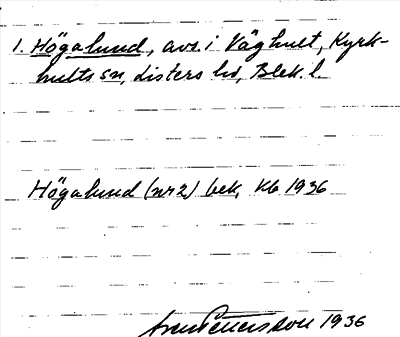 1. Högalund, avs. i Väghult, Kyrk-
hults sn, Listers hd, Blek. l.
Högalund (nr 2) bek. Kb 1936
Sven Pettersson 1936